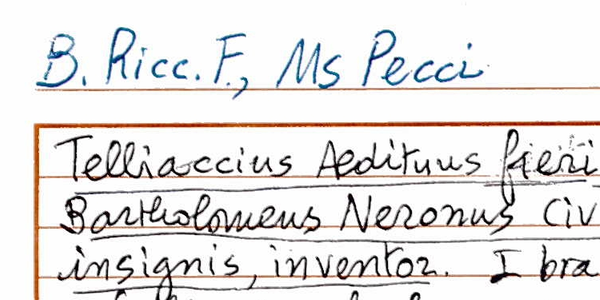 B. Ricc. F., Ms Pecci
Telliaccius Aedituus fieri
Bartholomeus Neronus Civ
insignis, inventor. I bra